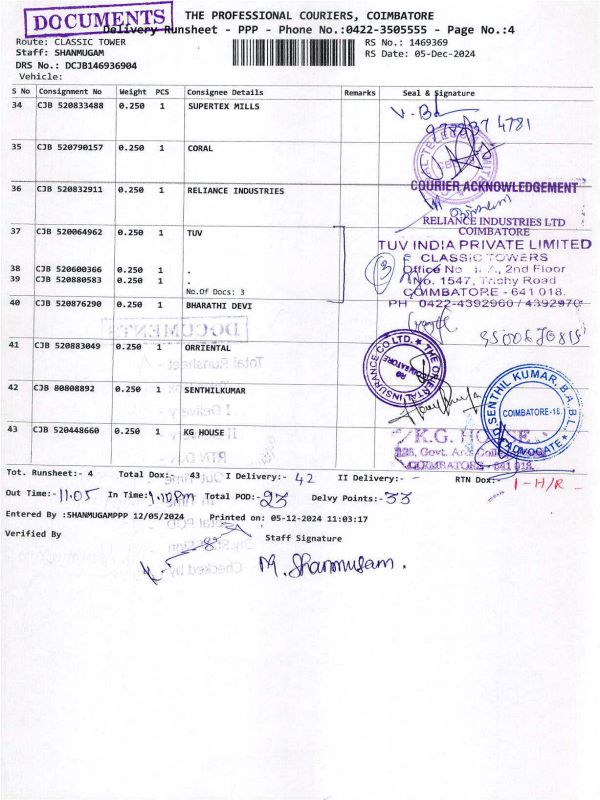 DOCUMENTS
THE PROFESSIONAL COURIERS, COIMBATORE
Delivery Runsheet - PPP - Phone No.:0422-3505555 - Page No.:4
Route: CLASSIC TOWER
RS No.: 1469369
Staff: SHANMUGAM
RS Date: 05-Dec-2024
DRS No.: DCJB146936904
Vehicle:
S No Consignment No Weight PCS Consignee Details Remarks Seal & Signature
34 CJB 520833488 0.250 1 SUPERTEX MILLS
35 CJB 520790157 0.250 1 CORAL
COURIER ACKNOWLEDGEMENT
36 CJB 520832911 0.250 1 RELIANCE INDUSTRIES
RELIANCE INDUSTRIES LTD
COIMBATORE
37 CJB 520064962 0.250 1 TUV
TUV INDIA PRIVATE LIMITED
CLASSIC TOWERS
38 CJB 520600366 0.250 1 .
3
Office No A, 2nd Floor
39 CJB 520880583 0.250 1 .
No. 1547, Trichy Road
No.Of Docs: 3
COIMBATORE - 641 018.
40 CJB 520876290 0.250 1 BHARATHI DEVI
PH 0422-4392960 / 4392970
DOCUMENTS
Total Runsheet
41 CJB 520883049 0.250 1 ORRIENTAL
THE ORIENTAL INSURANCE CO LTD.
RO
COIMBATORE
I Delivery
42 CJB 80808892 0.250 1 SENTHILKUMAR
D SENTHIL KUMAR, B.A.B.L.
COIMBATORE-18
ADVOCATE
II Delivery
43 CJB 520448660 0.250 1 KG HOUSE
K.G. HOUSE
Govt. Arts College
COIMBATORE - 641 018.
Tot. Runsheet:- 4 Total Dox:- 43 I Delivery:- 42 II Delivery:- - RTN Dox:- 1-H/R
Out Time:- 11.05 In Time:- 1.10pm Total POD:- 23 Delvy Points:- 33
Entered By :SHANMUGAMPPP 12/05/2024 Printed on: 05-12-2024 11:03:17
Verified By
Staff Signature
Checked by
M. Shanmugam.